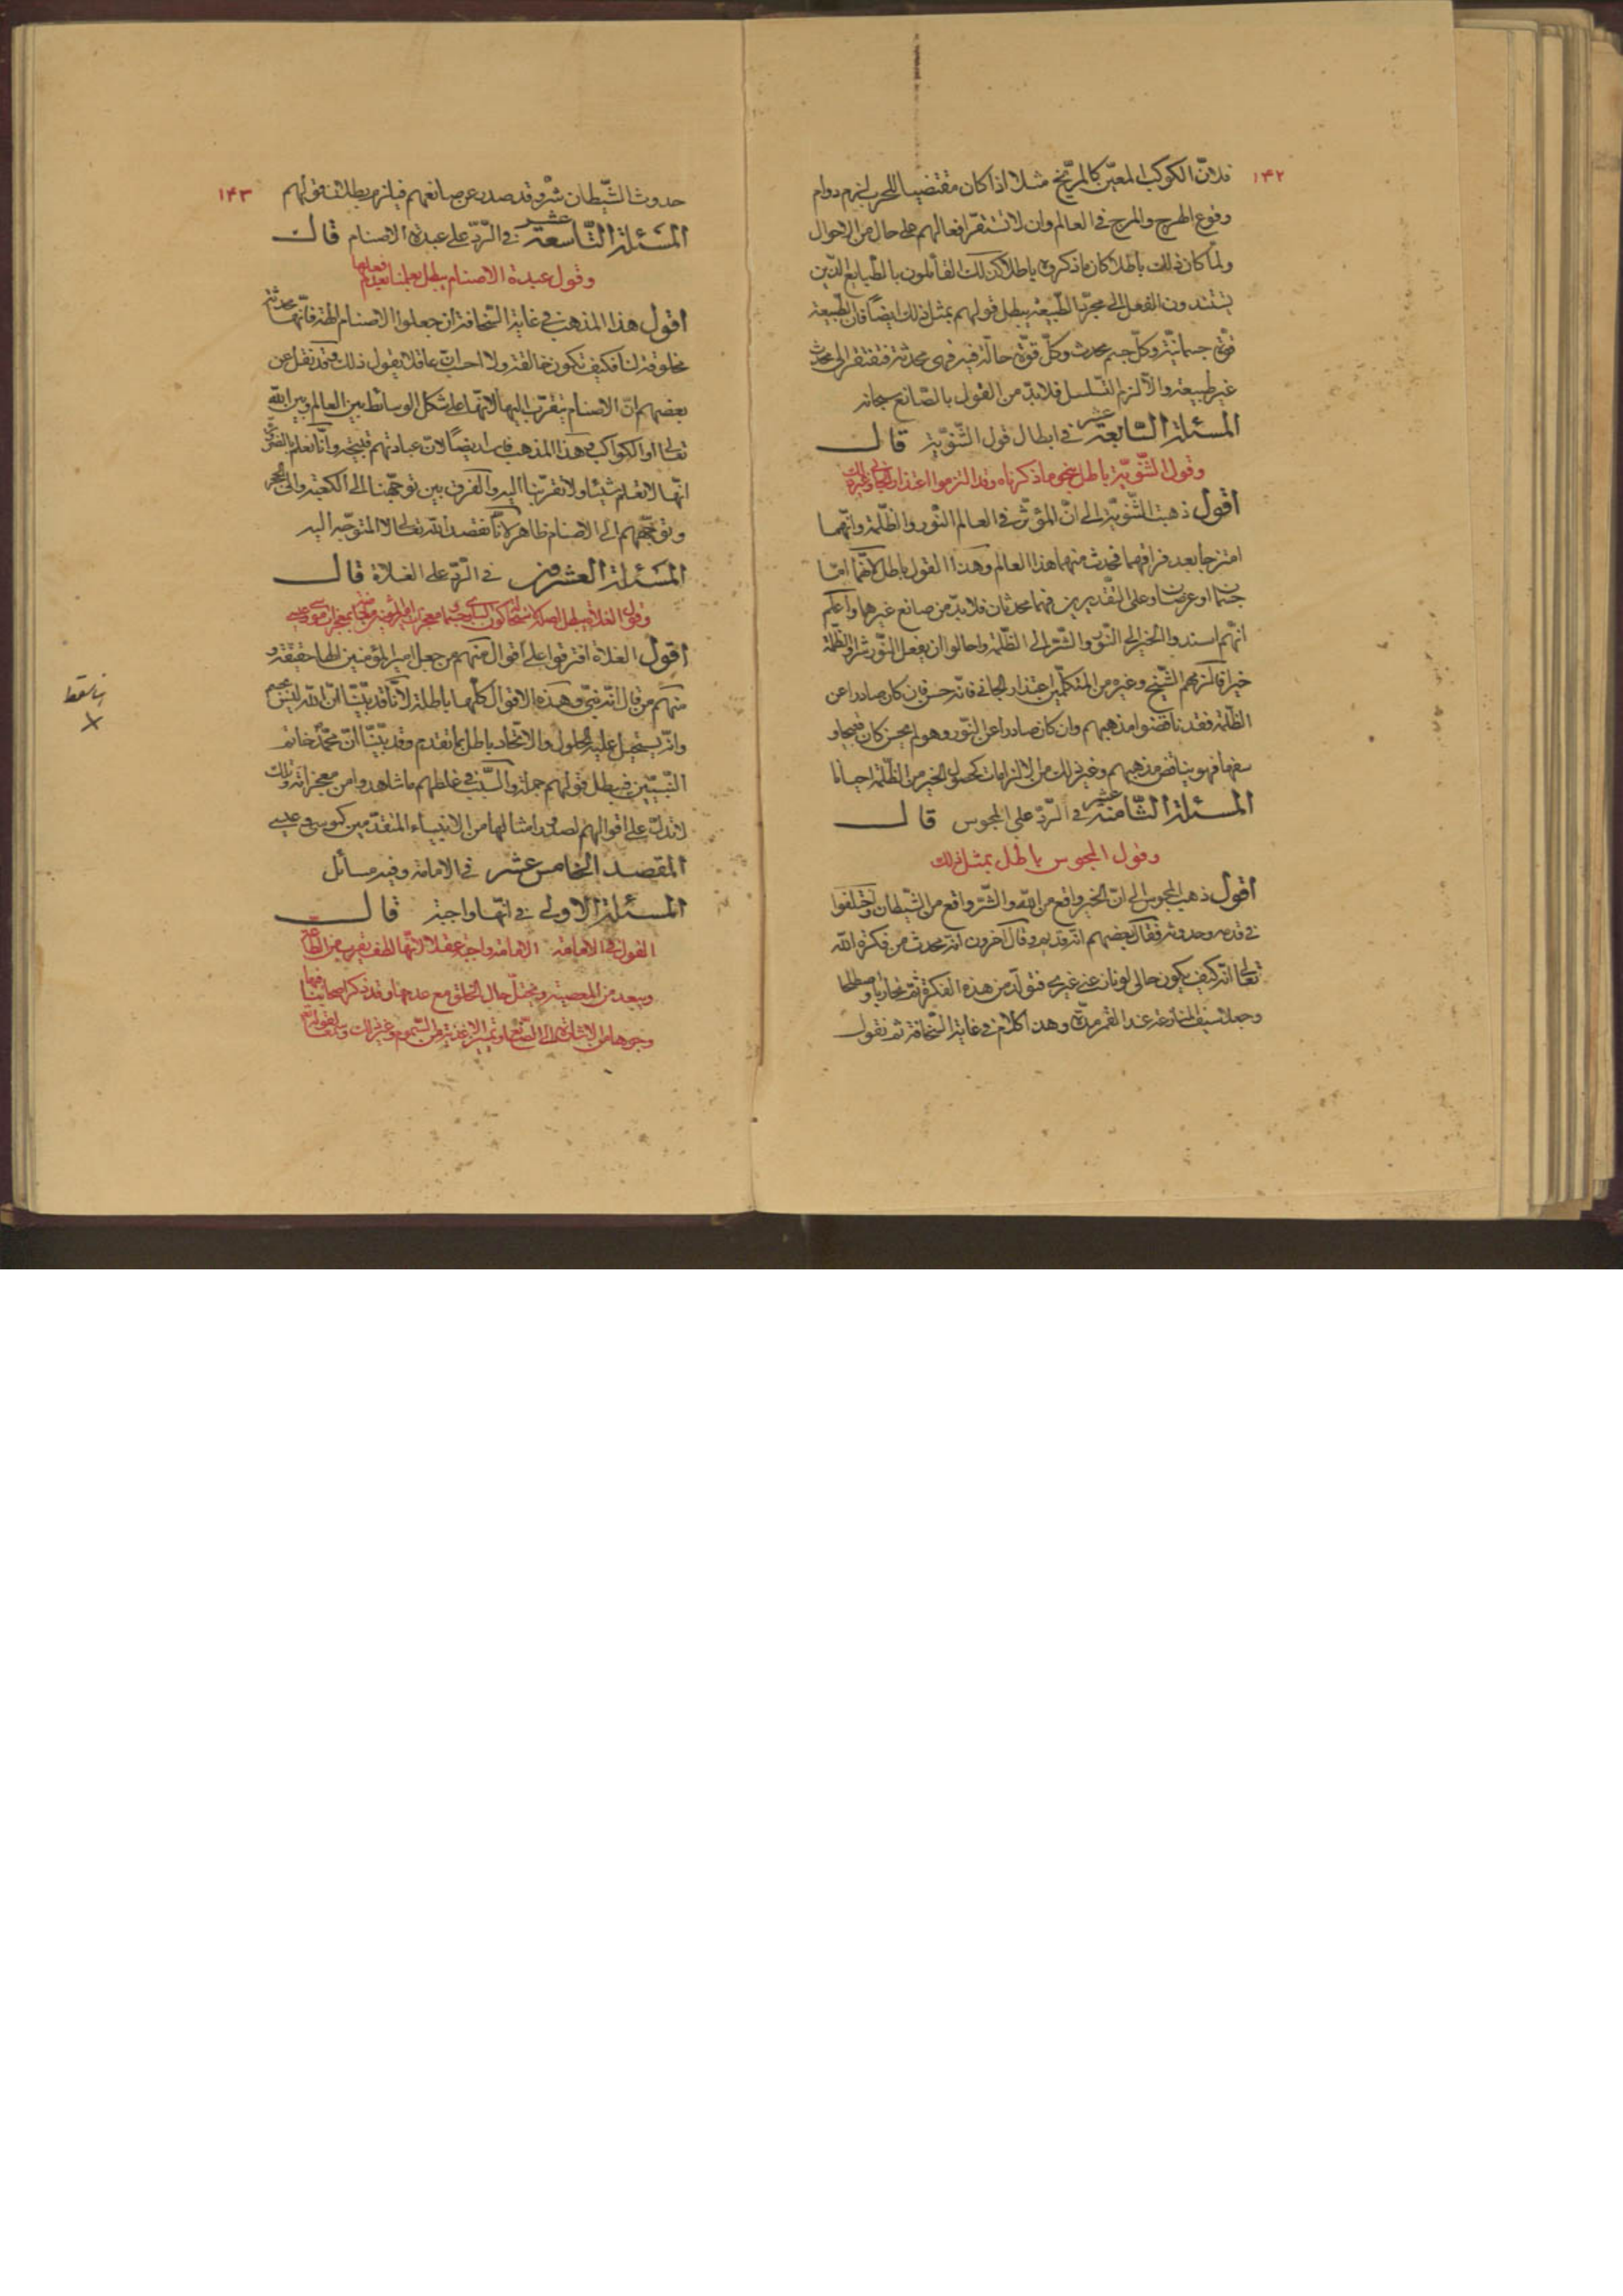 ١٤٢
فلانّ الكوكب المعيّن كالمرّيخ مثلا اذا كان مقتضيا للحرب لزم دوام
وقوع الهرج والمرج فى العالم وان لا تستقرّ افعالهم على حال من الاحوال
ولمّا كان ذلك باطلا كان ما ذكروه باطلا كذلك القائلون بالطبايع الذين
يسندون الفعل الى مجرّد الطّبيعة يبطل قولهم بمثل ذلك ايضًا فان الطّبيعة
قوّة جسمانيّة وكلّ جسم محدث وكلّ قوّة حالّة فيه فهى محدثة فتفتقر الى محدث
غير طبيعة والّا لزم التّسلسل فلا بدّ من القول بالصّانع سبحانه
المسئلة السّابعة عشر فى ابطال قول الثّنويّة قال
وقول الثّنويّة باطل بنحو ما ذكرناه وقد التزموا اعتذار الجانى وغير ذلك
اقول ذهبت الثّنويّة الى انّ المؤثّر فى العالم النّور والظّلمة وانّهما
امتزجا بعد فراقهما فحدث منهما هذا العالم وهذا القول باطل لانّهما امّا
جسمان او عرضان وعلى التّقديرين فهما محدثان فلا بدّ من صانع غيرهما واعلم
انّهم اسندوا الخير الى النّور والشّر الى الظّلمة واحالوا ان يفعل النّور شرا والظّلمة
خيرا فالزمهم الشّيخ وغيره من المتكلّمين اعتذار الجانى فانّه حسن فان كان صادرا عن
الظّلمة فقد ناقضوا مذهبهم وان كان صادرا عن النّور وهو لم يحسن كان قبيحا و
سفها فهو يناقض مذهبهم وغير ذلك من الالزامات كحصول الخير من الظّلمة احيانا
المسئلة الثّامنة عشر فى الرّدّ على المجوس قال
وقول المجوس باطل بمثل ذلك
اقول ذهب المجوس الى انّ الخير واقع من اللّه والشّر واقع من الشّيطان واختلفوا
فى قدمه وحدوثه فقال بعضهم انّه قديم وقال آخرون انّه محدث من فكرة اللّه
تعالى انّه كيف يكون حالى لو نازعنى غيرى فتولّد من هذه الفكرة ثمّ تحاربا واصطلحا
وجعلا سيف المنازعة عند القمر مدّة وهذا كلام فى غاية السّخافة ثم نقول
١٤٣
حدوث الشّيطان شرّ وقد صدر عن صانعهم فيلزم بطلان قولهم
المسئلة التّاسعة عشر فى الرّدّ على عبدة الاصنام قال
وقول عبدة الاصنام يبطل بعلمنا بعدم فعلها
اقول هذا المذهب فى غاية السّخافة ان جعلوا الاصنام الهة فانّها محدثة
مخلوقة لنا فكيف تكون خالقة ولا احد انّ عاقلا يقول ذلك وقد نقل عن
بعضهم انّ الاصنام يتقرّب اليها لانّها على شكل الوسائط بين العالم وبين اللّه
تعالى او الكواكب وهذا المذهب فاسد ايضًا لانّ عبادتهم قبيحة وانّا نعلم بالضّرورة
انّها لا تعلم شيئا ولا تقرّبنا اليه والفرق بين توجّهنا الى الكعبة والى الحجر
وتوجّههم الى الاصنام ظاهر لانّا نقصد اللّه تعالى لا المتوجّه اليه
المسئلة العشرون فى الرّدّ على الغلاة قال
وقول الغلاة يبطل
اقول الغلاة افترقوا على اقوال منهم من جعل امير المؤمنين الها حقيقة و
منهم من قال انّه نبىّ وهذه الاقوال كلّها باطلة لانّا قد بيّنّا انّ اللّه ليس بجسم
وانّه يستحيل عليه الحلول والاتّحاد باطل بما تقدم وقد بيّنّا انّ محمّدا خاتم
النّبيّين فبطل قولهم جملة والسّبب فى غلطهم ما شاهدوا من معجزاته وتلك
لا تدلّ على اقوالهم لصدور امثالها من الانبياء المتقدّمين كموسى وعيسى
المقصد الخامس عشر فى الامامة وفيه مسائل
المسئلة الاولى فى انّها واجبة قال
القول فى الامامة الامامة واجبة عقلا لانّها لطف يقرب من الطّاعة
ويبعد من المعصية ويختلّ حال الخلق مع عدمها وقد ذكر اصحابنا فيها
وجوها من الاشارة الى الصّنائع وتمييز الاغذية من السّموم وغير ذلك